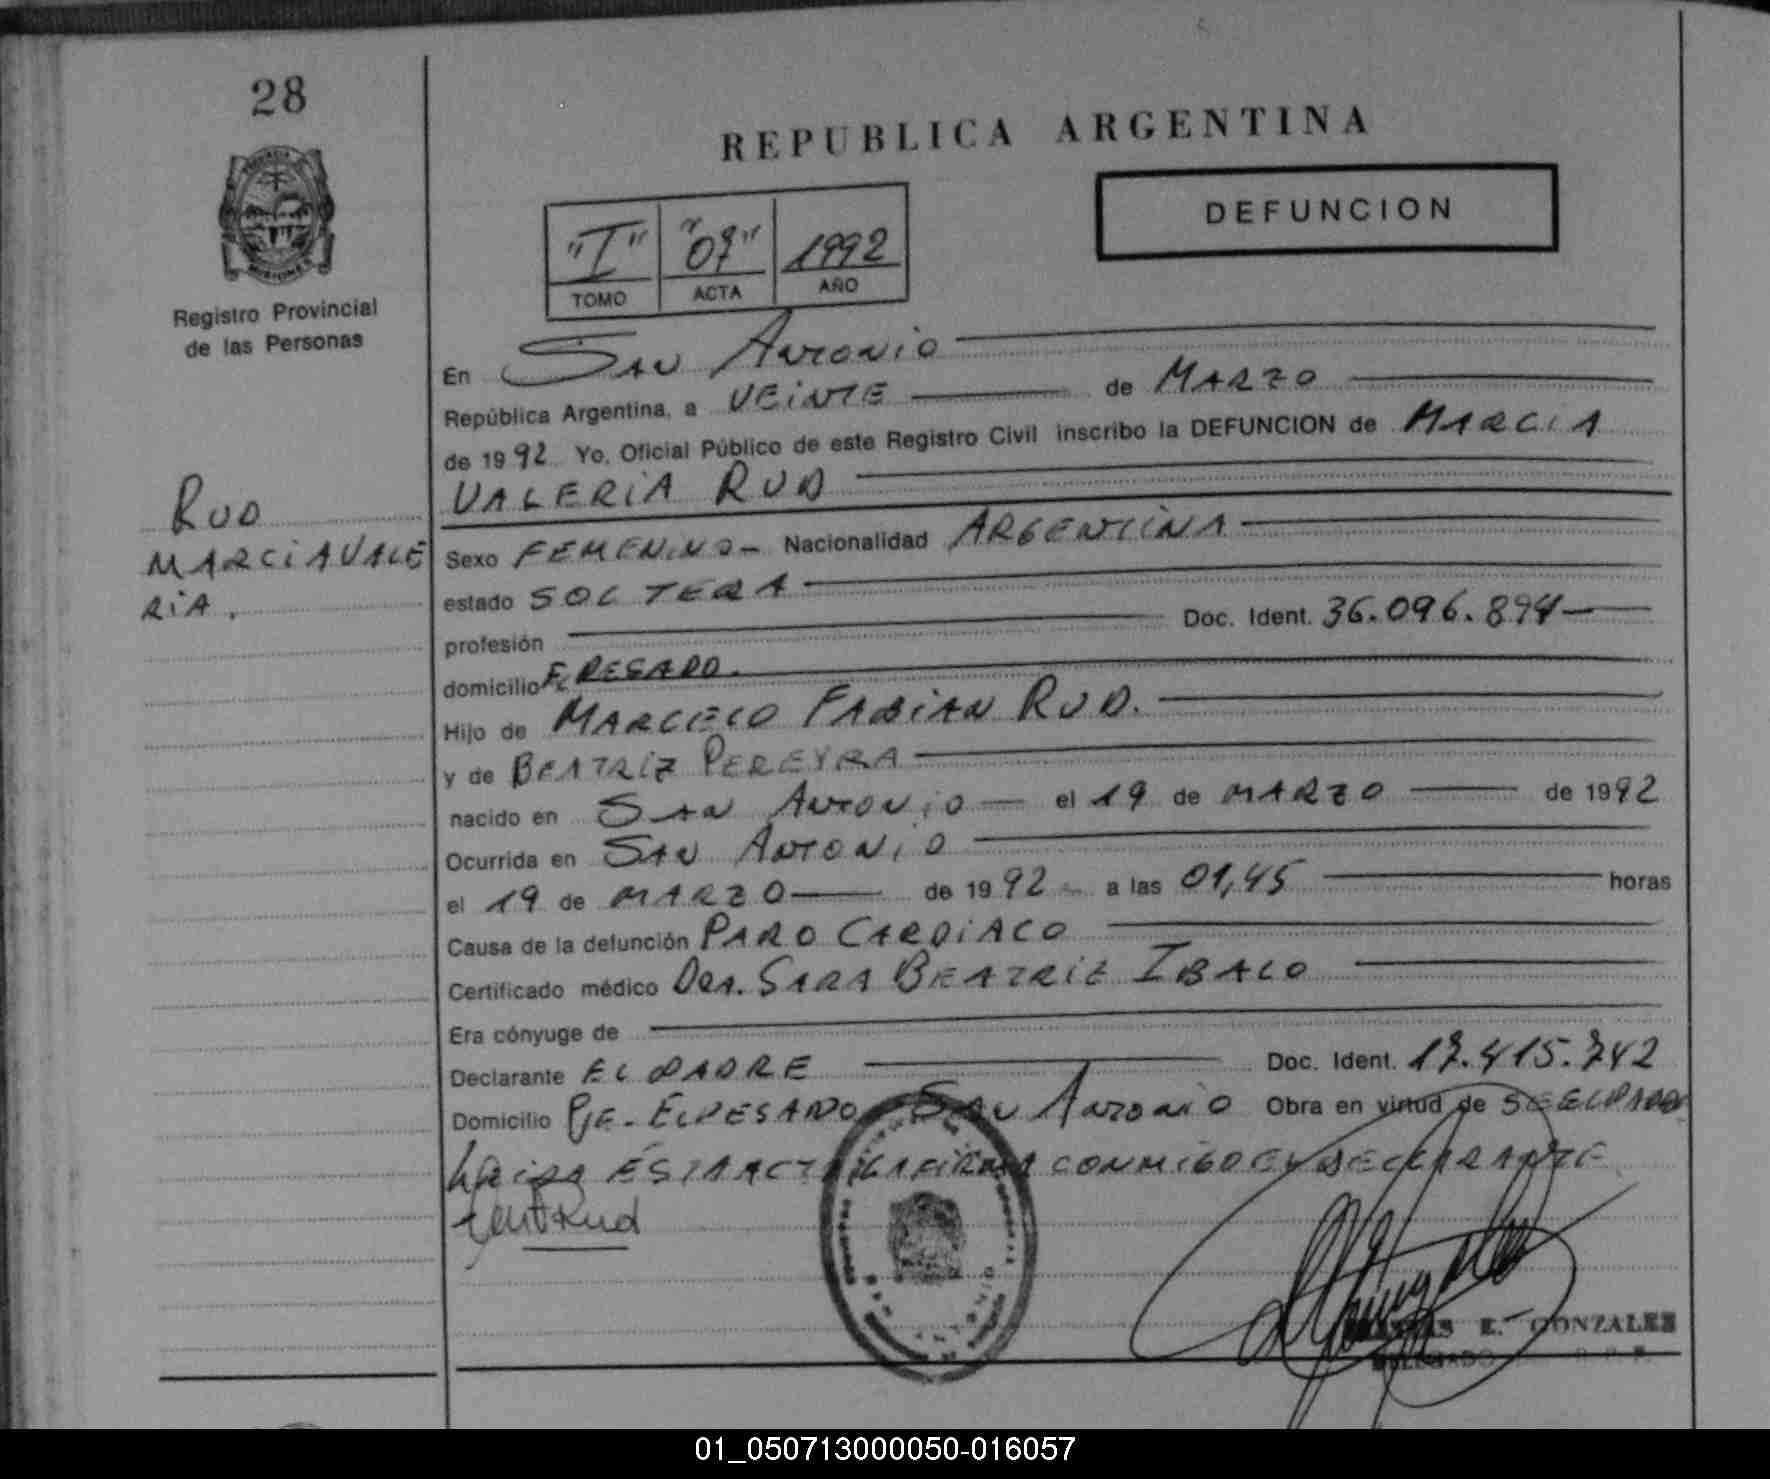 28
REPUBLICA ARGENTINA
DEFUNCION
"I" "07" 1992
TOMO ACTA AÑO
Registro Provincial
de las Personas
MISIONES
En San Antonio
República Argentina, a VEINTE de MARZO
de 1992 Yo, Oficial Público de este Registro Civil inscribo la DEFUNCION de MARCIA
VALERIA RUD
RUD
MARCIA VALE
RIA.
Sexo FEMENINO - Nacionalidad ARGENTINA
estado SOLTERA
profesión Doc. Ident. 36.096.894
domicilio EL PESADO.
Hijo de MARCELO FABIAN RUD.
y de BEATRIZ PEREYRA
nacido en SAN ANTONIO el 19 de MARZO de 1992
Ocurrida en SAN ANTONIO
el 19 de MARZO de 1992 a las 01,45 horas
Causa de la defunción PARO CARDIACO
Certificado médico DRA. SARA BEATRIZ IBALO
Era cónyuge de
Declarante EL PADRE Doc. Ident. 17.415.742
Domicilio PJE. EL PESADO SAN ANTONIO Obra en virtud de SER EL PADRE
LEIDA ESTA ACTA LA FIRMA CONMIGO EL DECLARANTE
Rud
E. GONZALEZ
DELEGADO
01_050713000050-016057